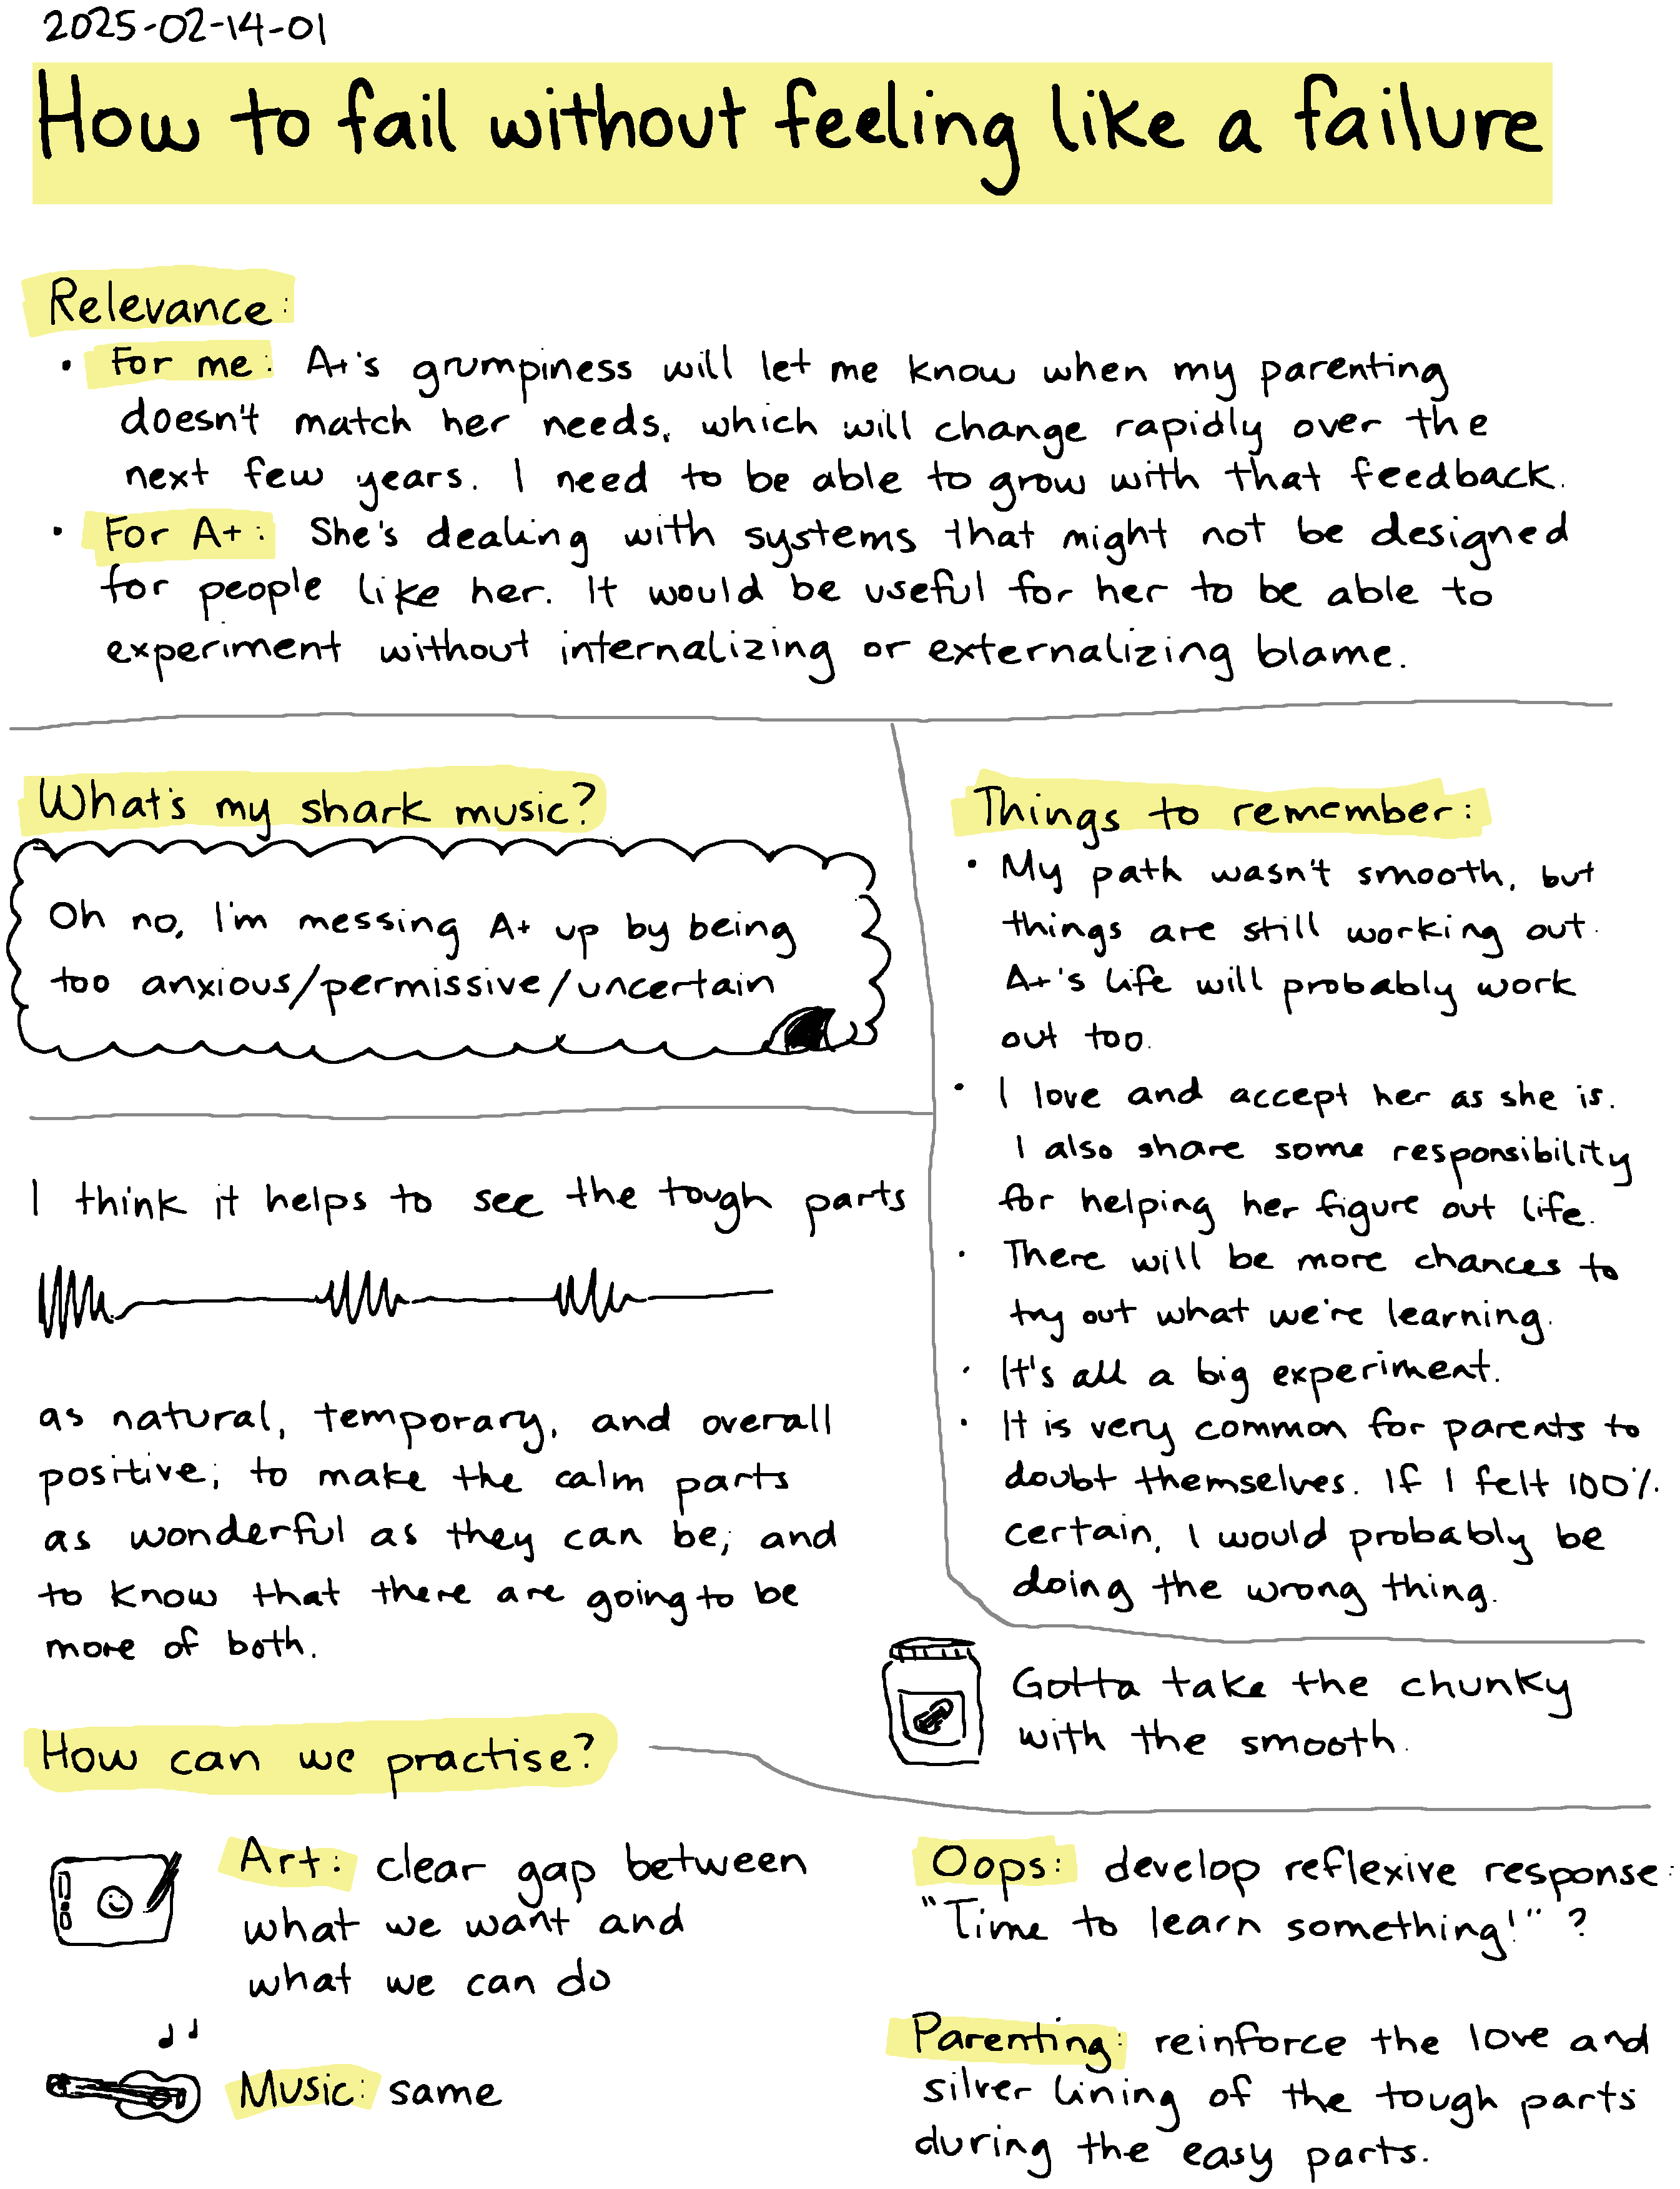 2025-02-14-01
How to fail without feeling like a failure
Relevance:
• For me: A+'s grumpiness will let me know when my parenting
doesn't match her needs, which will change rapidly over the
next few years. I need to be able to grow with that feedback.
• For A+: She's dealing with systems that might not be designed
for people like her. It would be useful for her to be able to
experiment without internalizing or externalizing blame.
What's my shark music?
Oh no, I'm messing A+ up by being
too anxious/permissive/uncertain
I think it helps to see the tough parts
as natural, temporary, and overall
positive; to make the calm parts
as wonderful as they can be; and
to know that there are going to be
more of both.
Things to remember:
• My path wasn't smooth, but
things are still working out.
A+'s life will probably work
out too.
• I love and accept her as she is.
I also share some responsibility
for helping her figure out life.
• There will be more chances to
try out what we're learning.
• It's all a big experiment.
• It is very common for parents to
doubt themselves. If I felt 100%
certain, I would probably be
doing the wrong thing.
Gotta take the chunky
with the smooth.
How can we practise?
Art: clear gap between
what we want and
what we can do
Music: same
Oops: develop reflexive response:
"Time to learn something!" ?
Parenting: reinforce the love and
silver lining of the tough parts
during the easy parts.